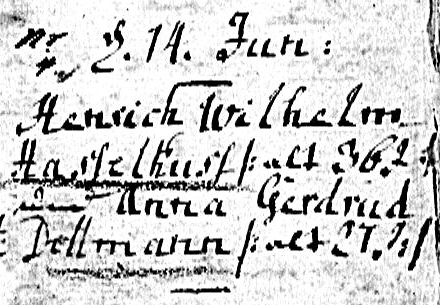 14. Jun:
Henrich Wilhelm
Hasselhuss |: alt 36. J :|
und Anna Gerdrud
Dellmann |: alt 27. :|